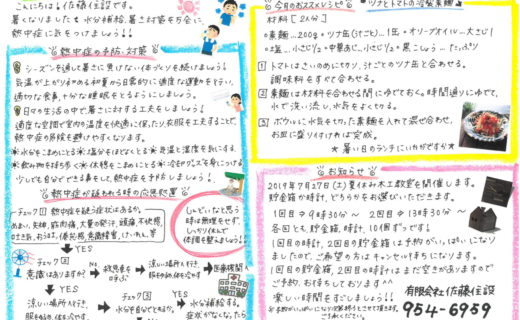 こんにちは！佐藤住設です。
暑くなりました
熱中症に気をつけましょう！
熱中症の予防・対策
シーズンを通して暑さに負けない体づくりを続けましょう！
気温が上がり初める初夏から日常的に適度な運動を行い、
適切な食事、十分な睡眠をとるようにしましょう。
日々の生活の中で暑さに対する工夫をしましょう！
適度な空調で室内の温度を快適に保ったり、衣服を工夫することで、
熱中症の危険を避けやすくなります。
水分をこまめにとる 塩分をほどよくとる 気温と湿度を気にする
飲み物を持ち歩く 休憩をこまめにとる 冷却グッズを身につける
少しでも自分でできる事をして、熱中症を予防しましょう！
熱中症が疑われる時の応急処置
チェック1 熱中症を疑う症状はあるか。
めまい、失神、筋肉痛、大量の発汗、頭痛、不快感、
吐き気、おう吐、倦怠感、意識障害、けいれん、等
しんどいなと思う
時は無理をせず、
しっかり休んで
体調を整えましょう！
YES
チェック2
意識はありますか？
No
救急車を
呼ぶ
涼しい場所へ行き、
医療機関へ
YES
涼しい場所へ行き、
服をゆるめ、体を冷やす
チェック3
水分を自分でとれるか。
YES
水分を補給する。
症状がなくなったら
今日のおススメレシピ
ツナとトマトの冷製素麺
材料【2人分】
素麺…200g ツナ缶(汁ごと)…1缶 オリーブオイル…大さじ1
塩…小さじ1/2 中華あじ…小さじ1/2 黒こしょう…たっぷり
1 トマトはさいのめに切り、汁ごとのツナ缶と合わせる。
調味料をすべて合わせる。
2 素麺は木材料を合わせる間にゆでておく。時間通りにゆで、
水で洗い流し、水気をよくきる。
3 ボウルに水気を切った素麺を入れて混ぜ合わせ、
お皿に盛り付ければ完成。
★暑い日のランチにいかがですか★
お知らせ
2019年7月27日(土)夏休み木工教室を開催します。
貯金箱か時計、どちらかをお選びいただきます。
1回目→9時30分〜 2回目→13時30分〜
各回とも、貯金箱、時計、10個ずつです！
1回目の時計、2回目の貯金箱は予約がいっぱいになり
ましたので、ご希望の方はキャンセル待ちになります。
1回目の貯金箱、2回目の時計はまだ空きがありますので
ご予約、お待ちしております^^
楽しい時間をすごしましょう！！
有限会社佐藤住設
954-6959